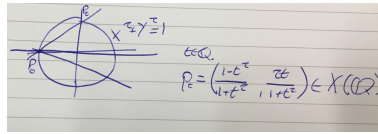 P_t
x²+y²=1
P_0
t∈Q.
P_t = (1-t²/1+t², 2t/1+t²) ∈ X(Q)